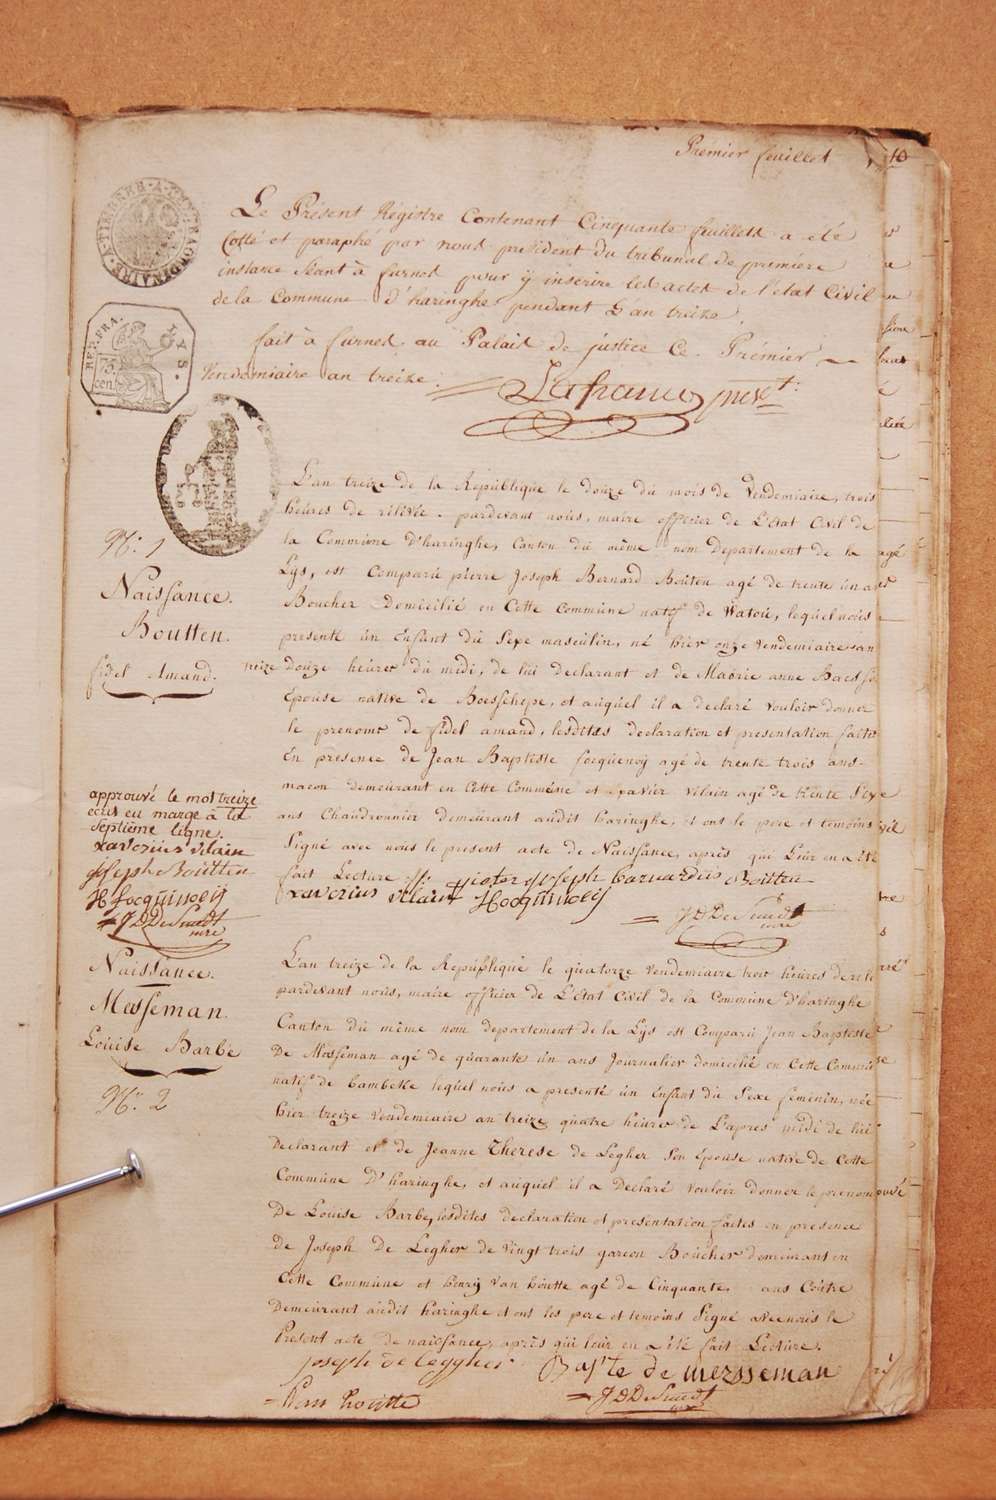 Prémier feuillet 10
A TIMBRER A L'EXTRAORDINAIRE
Le Présent Régistre Contenant Cinquante feuillets a été
Cotté et paraphé par nous président du tribunal de première
instance Séant à furnes pour ÿ inscrire les actes de l'état Civil
de la Commune d'haringhe pendant L'an treize.
REP. FRA.
75
cen
LYS.
fait à furnes au Palais de justice Ce Prémier
Vendemiaire an treize.
Lafranco presdt.
L'an treize de la République le douze du mois de Vendemiaire, trois
heures de rélivée. pardevant nous, maire officier de L'état Civil de
la Commune D'haringhe, Canton du même nom Departement de la
Lÿs, est Comparu pierre Joseph Bernard Boùten agé de trente ùn ans
Boucher Domicilié en Cette Commune natif de Watoù, lequel noùs
presenté ùn Enfant du Sexe masculin, né hier onze vendemiaire an
treize douze heures dù midi, de lùi declarant et de Marie anne Baes Son
Epouse native de Boesschepe, et aùquel il a declaré vouloir donner
le prenoms de fidel amand, lesdites declaration et presentation faites
En présence de Jean Baptiste focquenoÿ agé de trente trois ans
macon demeurant en Cette Commùne et Xavier vilain agé de trente Sixe
ans Chaudronnier demeurant audit haringhe, et ont le pere et temoins
Signé avec noùs le present acte de Naissance, après qui Leùr en a été
fait Lecture ./. pieter joseph barnardùs Boùtten
Xaverius vilain H focqùinolÿ
JDDeSmedt
mre
No: 1
Naissance.
Boùtten.
fidel Amand.
approuvé le mot treize
ecrit en marge à la
Septième ligne.
xaverius vilain
joseph Boùtten
H focqùinolÿ
JDDeSmedt
mre
Naissance.
Messeman.
Loùise Barbe
No. 2
L'an treize de la République le quatorze Vendemiaire trois heures de réli
pardevant noùs, maire officier de L'état Civil de la Commune D'haringhe
Canton dù même nom departement de la Lÿs est Comparù Jean Baptiste
De Messeman agé de quarante ùn ans Journalier domicilié en Cette Commùne
natif de bambeke lequel noùs a presenté ùn Enfant dù Sexe feminin, née
hier treize Vendemeaire an treize quatre heùres de L'apres midi de lùi
Declarant et de Jeanne Therese de Legher Son Epouse native de Cette
Commùne D'haringhe, et aùquel il a Declaré vouloir donner le prenom
De Loùise Barbe, lesdites declaration et presentation faites en presence
de Joseph De Legher de vingt trois garcon Boucher demeùrant en
Cette Commùne et henrÿ van hoùtte agé de Cinquante ans Coùtre
Demeùrant aùdit haringhe et ont les pere et temoins Signé avec noùs le
Présent acte de naissance, après qui leùr en a été fait Lecture.
joseph de legghes Bapte de mersseman
Van hoùtte JDDeSmedt